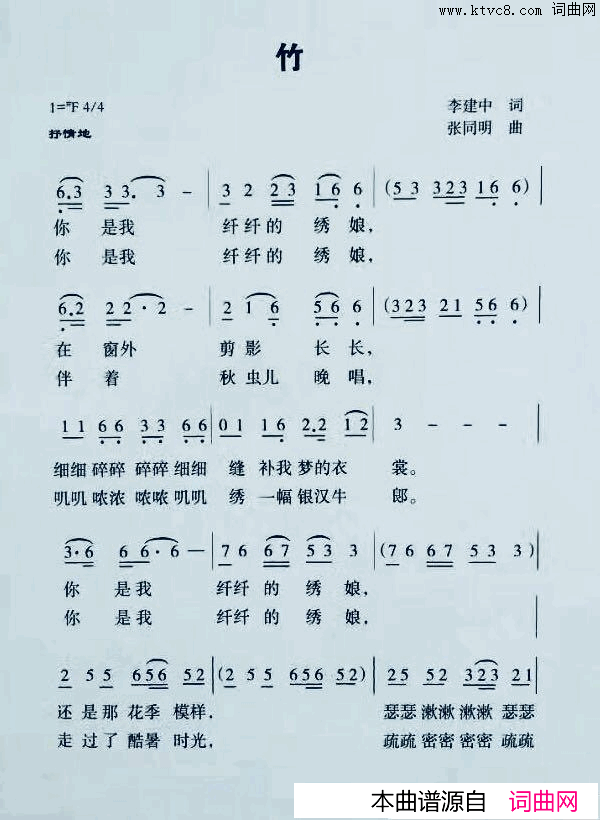 www.ktvc8.com 词曲网
竹
1=#F 4/4
李建中 词
抒情地
张同明 曲
6.3 3 3. 3 - | 3 2 2 3 1 6 6 | (5 3 3 2 3 1 6 6) |
你 是我 纤纤的 绣 娘，
你 是我 纤纤的 绣 娘，
6.2 2 2·2 - | 2 1 6 5 6 6 | (3 2 3 2 1 5 6 6) |
在 窗外 剪影 长长，
伴 着 秋虫儿 晚唱，
1 1 6 6 3 3 6 6 | 0 1 1 6 2.2 1 2 | 3 - - - |
细细 碎碎 碎碎 细细 缝 补我 梦的衣 裳。
叽叽 哝浓 哝哝 叽叽 绣 一幅 银汉牛 郎。
3·6 6 6·6 — | 7 6 6 7 5 3 3 | (7 6 6 7 5 3 3) |
你 是我 纤纤 的 绣娘，
你 是我 纤纤 的 绣娘，
2 5 5 6 5 6 5 2 | (2 5 5 6 5 6 5 2) | 2 5 5 2 3 2 3 2 1 |
还 是那 花季 模样， 瑟瑟 漱漱 漱漱 瑟瑟
走 过了 酷暑 时光， 疏疏 密密 密密 疏疏
本曲谱源自 词曲网